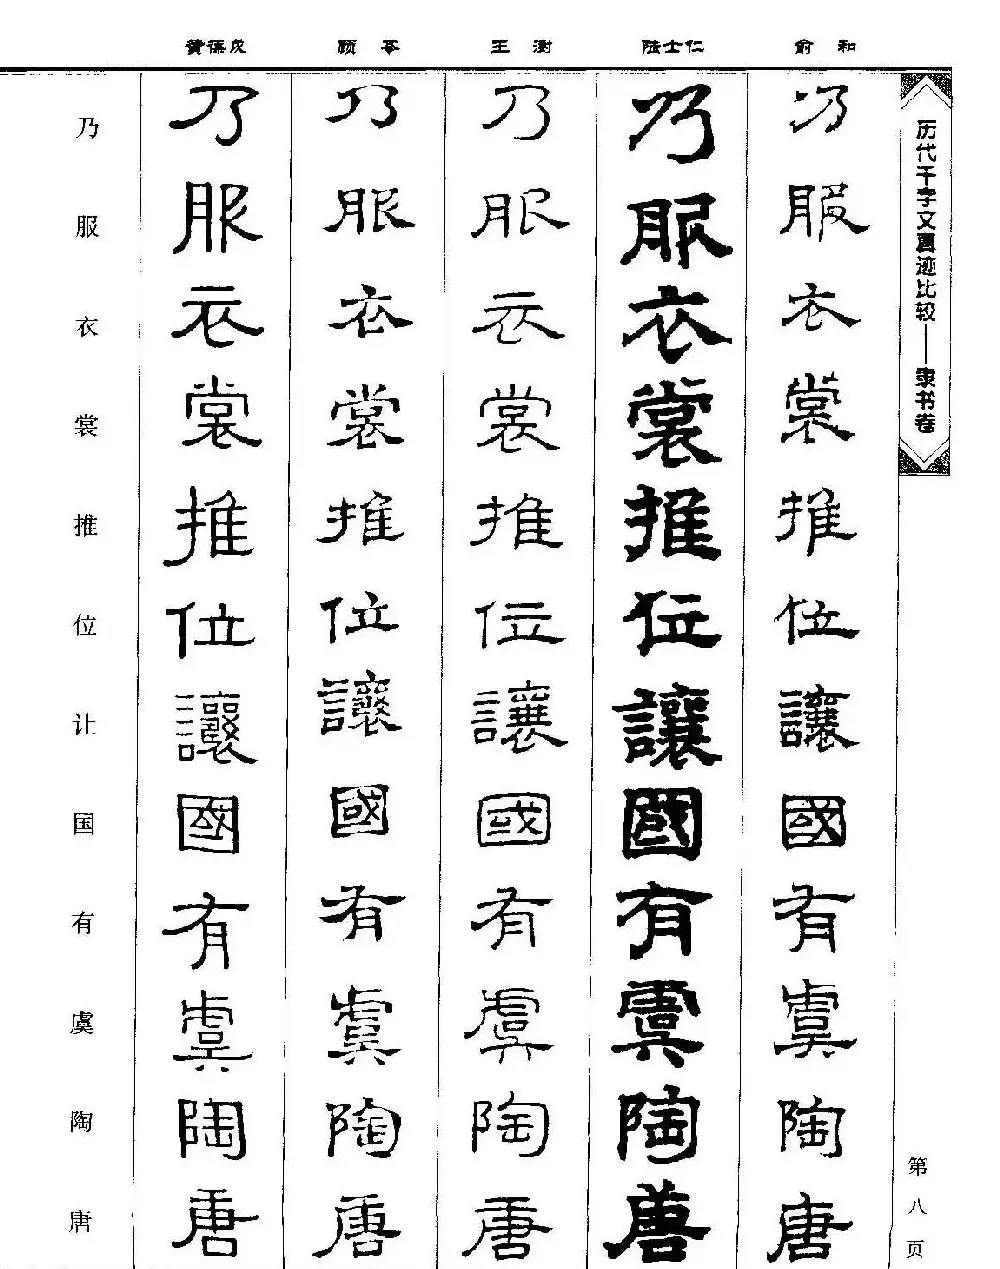 俞和
陆士仁
王澍
顾苓
黄葆戉
历代千字文真迹比较——隶书卷
第八页
乃服衣裳推位讓國有虞陶唐
乃服衣裳推位讓國有虞陶唐
乃服衣裳推位讓國有虞陶唐
乃服衣裳推位讓國有虞陶唐
乃服衣裳推位讓國有虞陶唐
乃服衣裳推位让国有虞陶唐